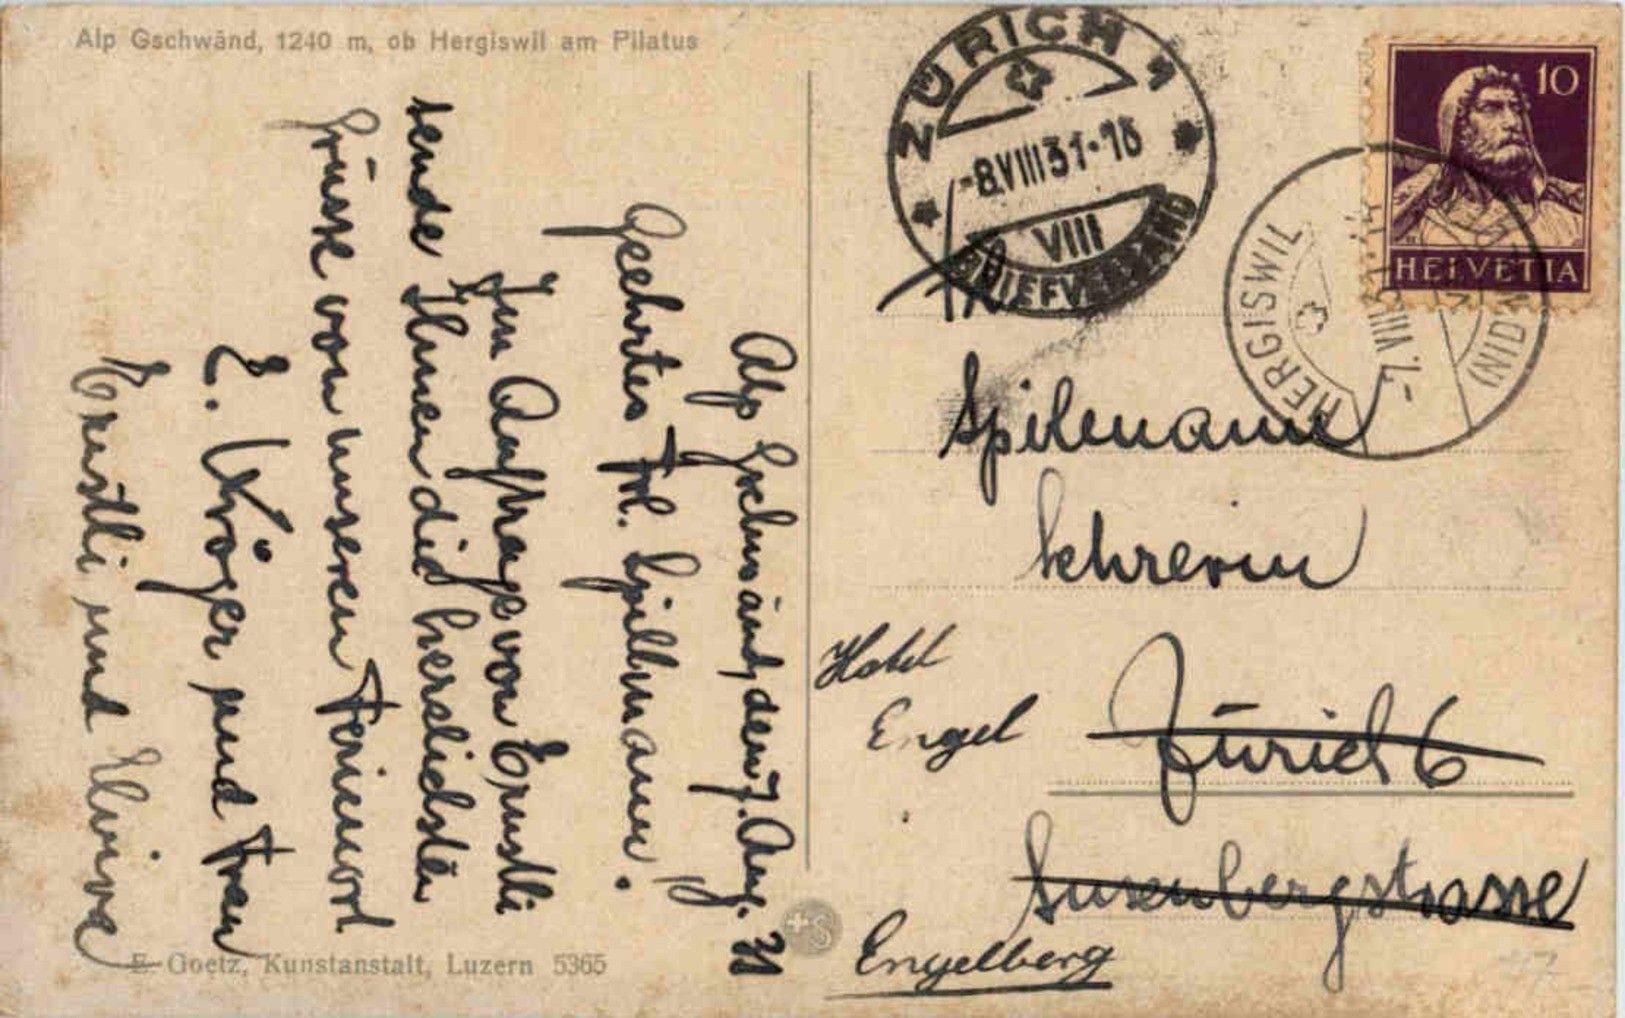 Alp Gschwänd, 1240 m, ob Hergiswil am Pilatus
Alp Gschwänd, den 7. Aug. 31
Geehrtes Frl. Spillmann.
Im Auftrage von Ernstli
sende Ihnen die herzlichsten
Grüsse von unserem Ferienort
E. Kröger und Frau
Ernstli und Elvira
E. Goetz, Kunstanstalt, Luzern 5365
+S
ZÜRICH 1
-8.VIII.31-16
VIII
BRIEFVERSAND
10
HELVETIA
HERGISWIL
-7.VIII.31
(NIDW
Spilemann
Lehrerin
Zürich 6
Susenbergstrasse
Hotel
Engel
Engelberg